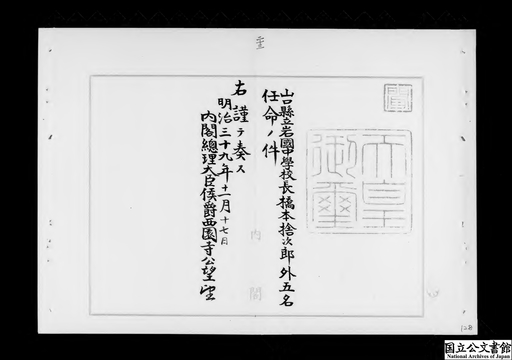 山口縣立岩國中學校長橋本捨次郎外五名
任命ノ件
右謹テ奏ス
明治三十九年十二月十七日
內閣總理大臣侯爵西園寺公望
天皇御璽
內閣
128
国立公文書館
National Archives of Japan